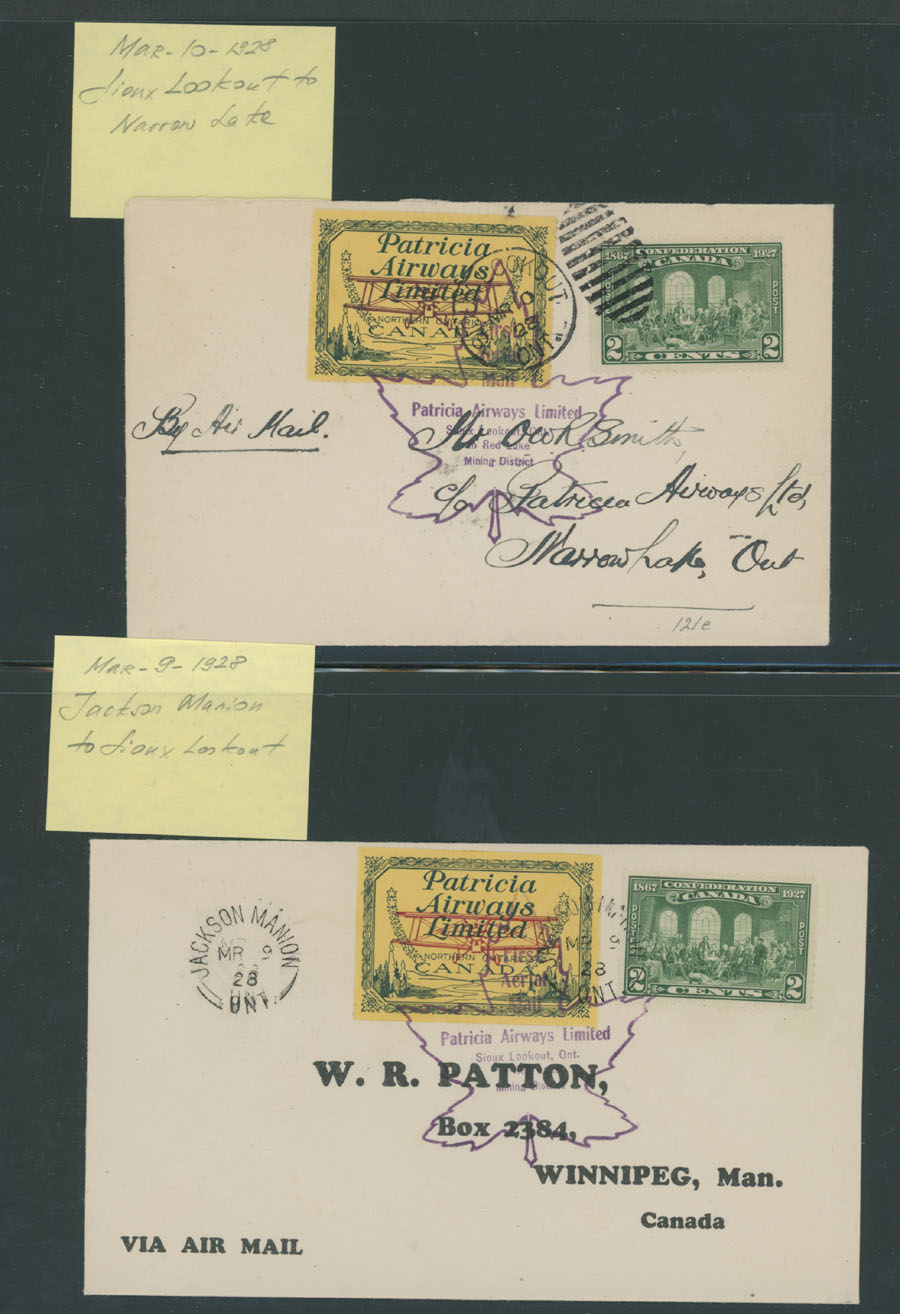 Mar-10-1928
Sioux Lookout to
Narrow Lake
Patricia
Airways
Limited
NORTHERN ONTARIO
CANADA
OKOUT
28
ONT
1867 CONFEDERATION 1927
CANADA
POSTES POST
2 CENTS 2
First
Mail
Patricia Airways Limited
Sioux Lookout, Ont.
to Red Lake
Mining District
By Air Mail.
Mr Smith
c/o Patricia Airways Ltd,
Narrow Lake, Ont
121e
Mar-9-1928
Jackson Manion
to Sioux Lookout
Patricia
Airways
Limited
NORTHERN ONTARIO
CANADA
1867 CONFEDERATION 1927
CANADA
POSTES POST
2 CENTS 2
JACKSON MANION
MR 9
28
ONT
MR 9
28
ONT
First
Aerial
Mail
Patricia Airways Limited
Sioux Lookout, Ont.
Mining District
W. R. PATTON,
Box 2384,
WINNIPEG, Man.
Canada
VIA AIR MAIL